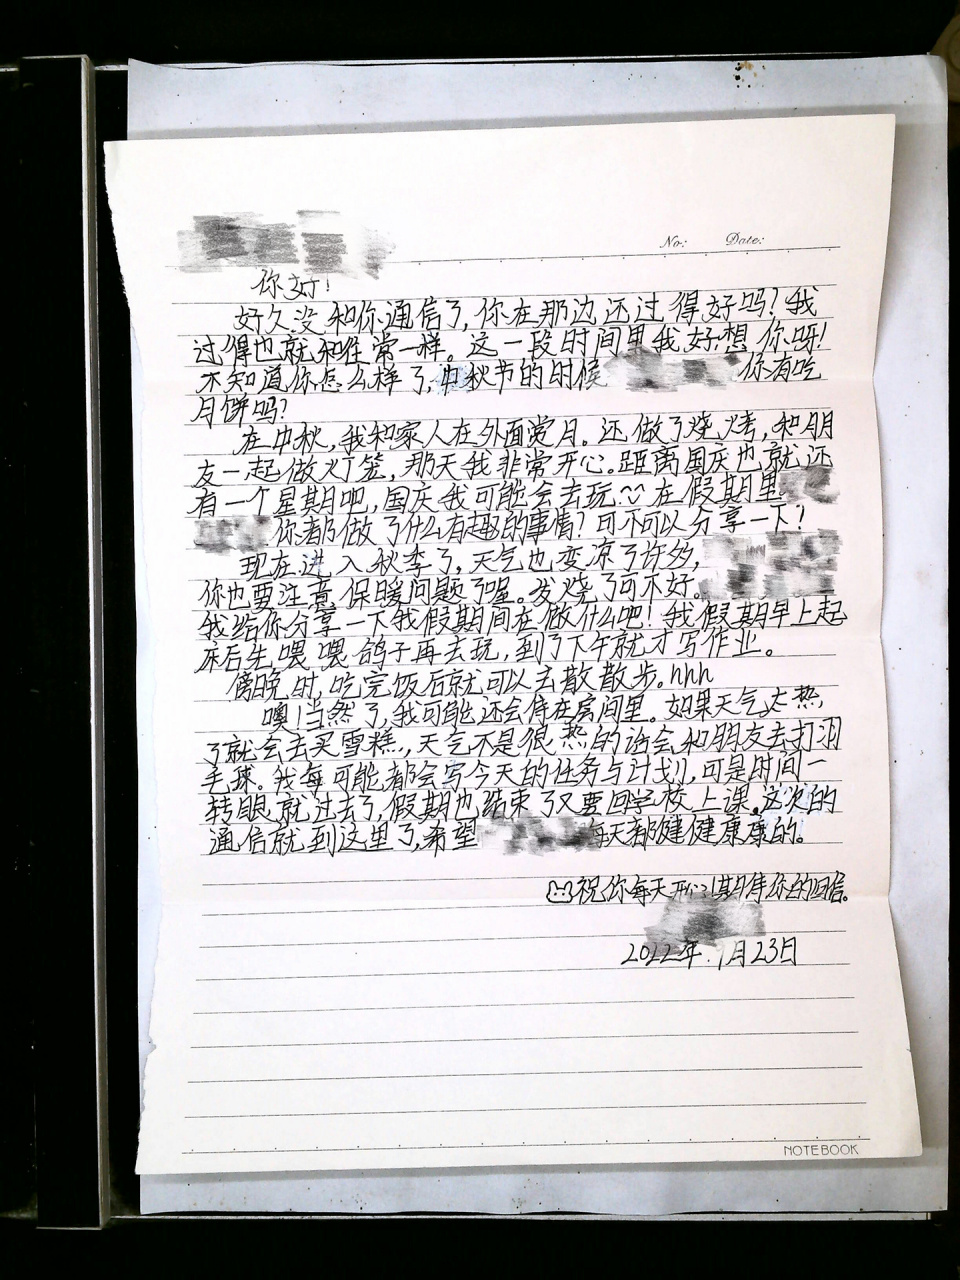 No: Date:
你好!
好久没和你通信了,你在那边还过得好吗?我
过得也就和往常一样。这一段时间里我好想你呀!
不知道你怎么样了,中秋节的时候 你有吃
月饼吗?
在中秋,我和家人在外面赏月。还做了烧烤,和朋
友一起做灯笼,那天我非常开心。距离国庆也就还
有一个星期吧,国庆我可能会去玩~~在假期里
你都做了什么有趣的事情?可不可以分享一下!
现在进入秋季了,天气也变凉了许多,
你也要注意保暖问题了喔。发烧了可不好。
我给你分享一下我假期间在做什么吧!我假期早上起
床后先喂喂鸽子再去玩,到了下午就才写作业。
傍晚时,吃完饭后就可以去散散步。hhh
噢!当然了,我可能还会待在房间里。如果天气太热
了就会去买雪糕,天气不是很热的话会和朋友去打羽
毛球。我每可能都会写今天的任务与计划,可是时间一
转眼就过去了,假期也结束了又要回学校上课。这次的
通信就到这里了,希望 每天都健健康康的。
祝你每天开心!期待你的回信。
2022年 9月23日
NOTEBOOK